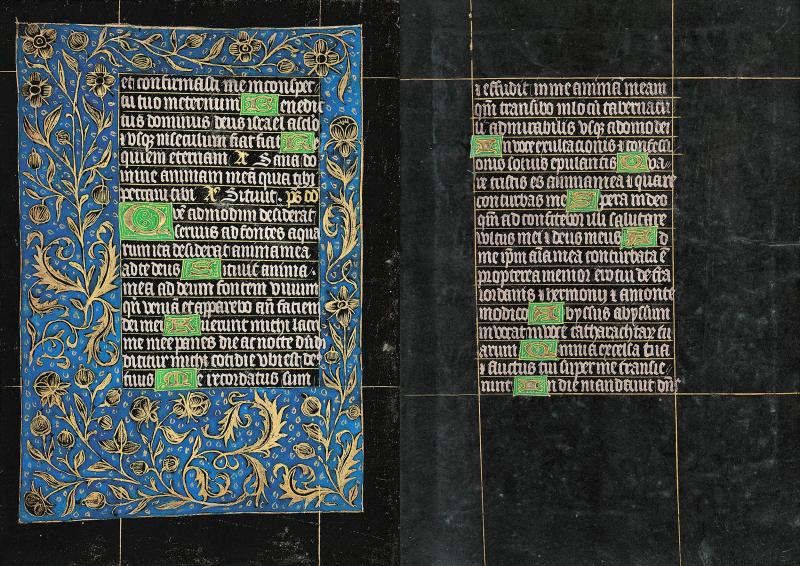 et confirmasti me inconspec
tu tuo ineternum Benedic
tus dominus deus israel aseclo
⁊ vsqꝫ inseculum fiat fiat Re
quiem eternam v̄ Sana do
mine animam meā quia tibi
peccaui tibi v̄ Situit. ps dd
Quēadmodum desiderat
seruus ad fontes aqua
rum ita desiderat anima mea
ad te deus Sitiuit anima
mea ad deum fontem viuum
qn̄ veniā et apparebo añ faciem
dei mei Fuerunt michi lacri
me mee panes die ac nocte dūm
dicitur michi cotidie vbi est de
tuus Mec recordatus sum
⁊ effudit in me animā meam
qm̄ transibo in locū tabernacu
li admirabilis vsqꝫ ad domū dei
In voce exultacionis ⁊ confessi
onis sonus epulantis Qua
re tristis es anima mea ⁊ quare
conturbas me Spera in deo
qm̄ ad confitebor illi salutare
vultus mei ⁊ deus meus Ad
me ip̄m aīa mea conturbata ē
propterea memor ero tui de t̄ra
iordanis ⁊ hermonij a monte
modico Abyssus abyssum
inuocat in voce catharactar tu
arum Omnia excelsa tua
⁊ fluctus tui super me transie
runt In die mandauit dn̄s